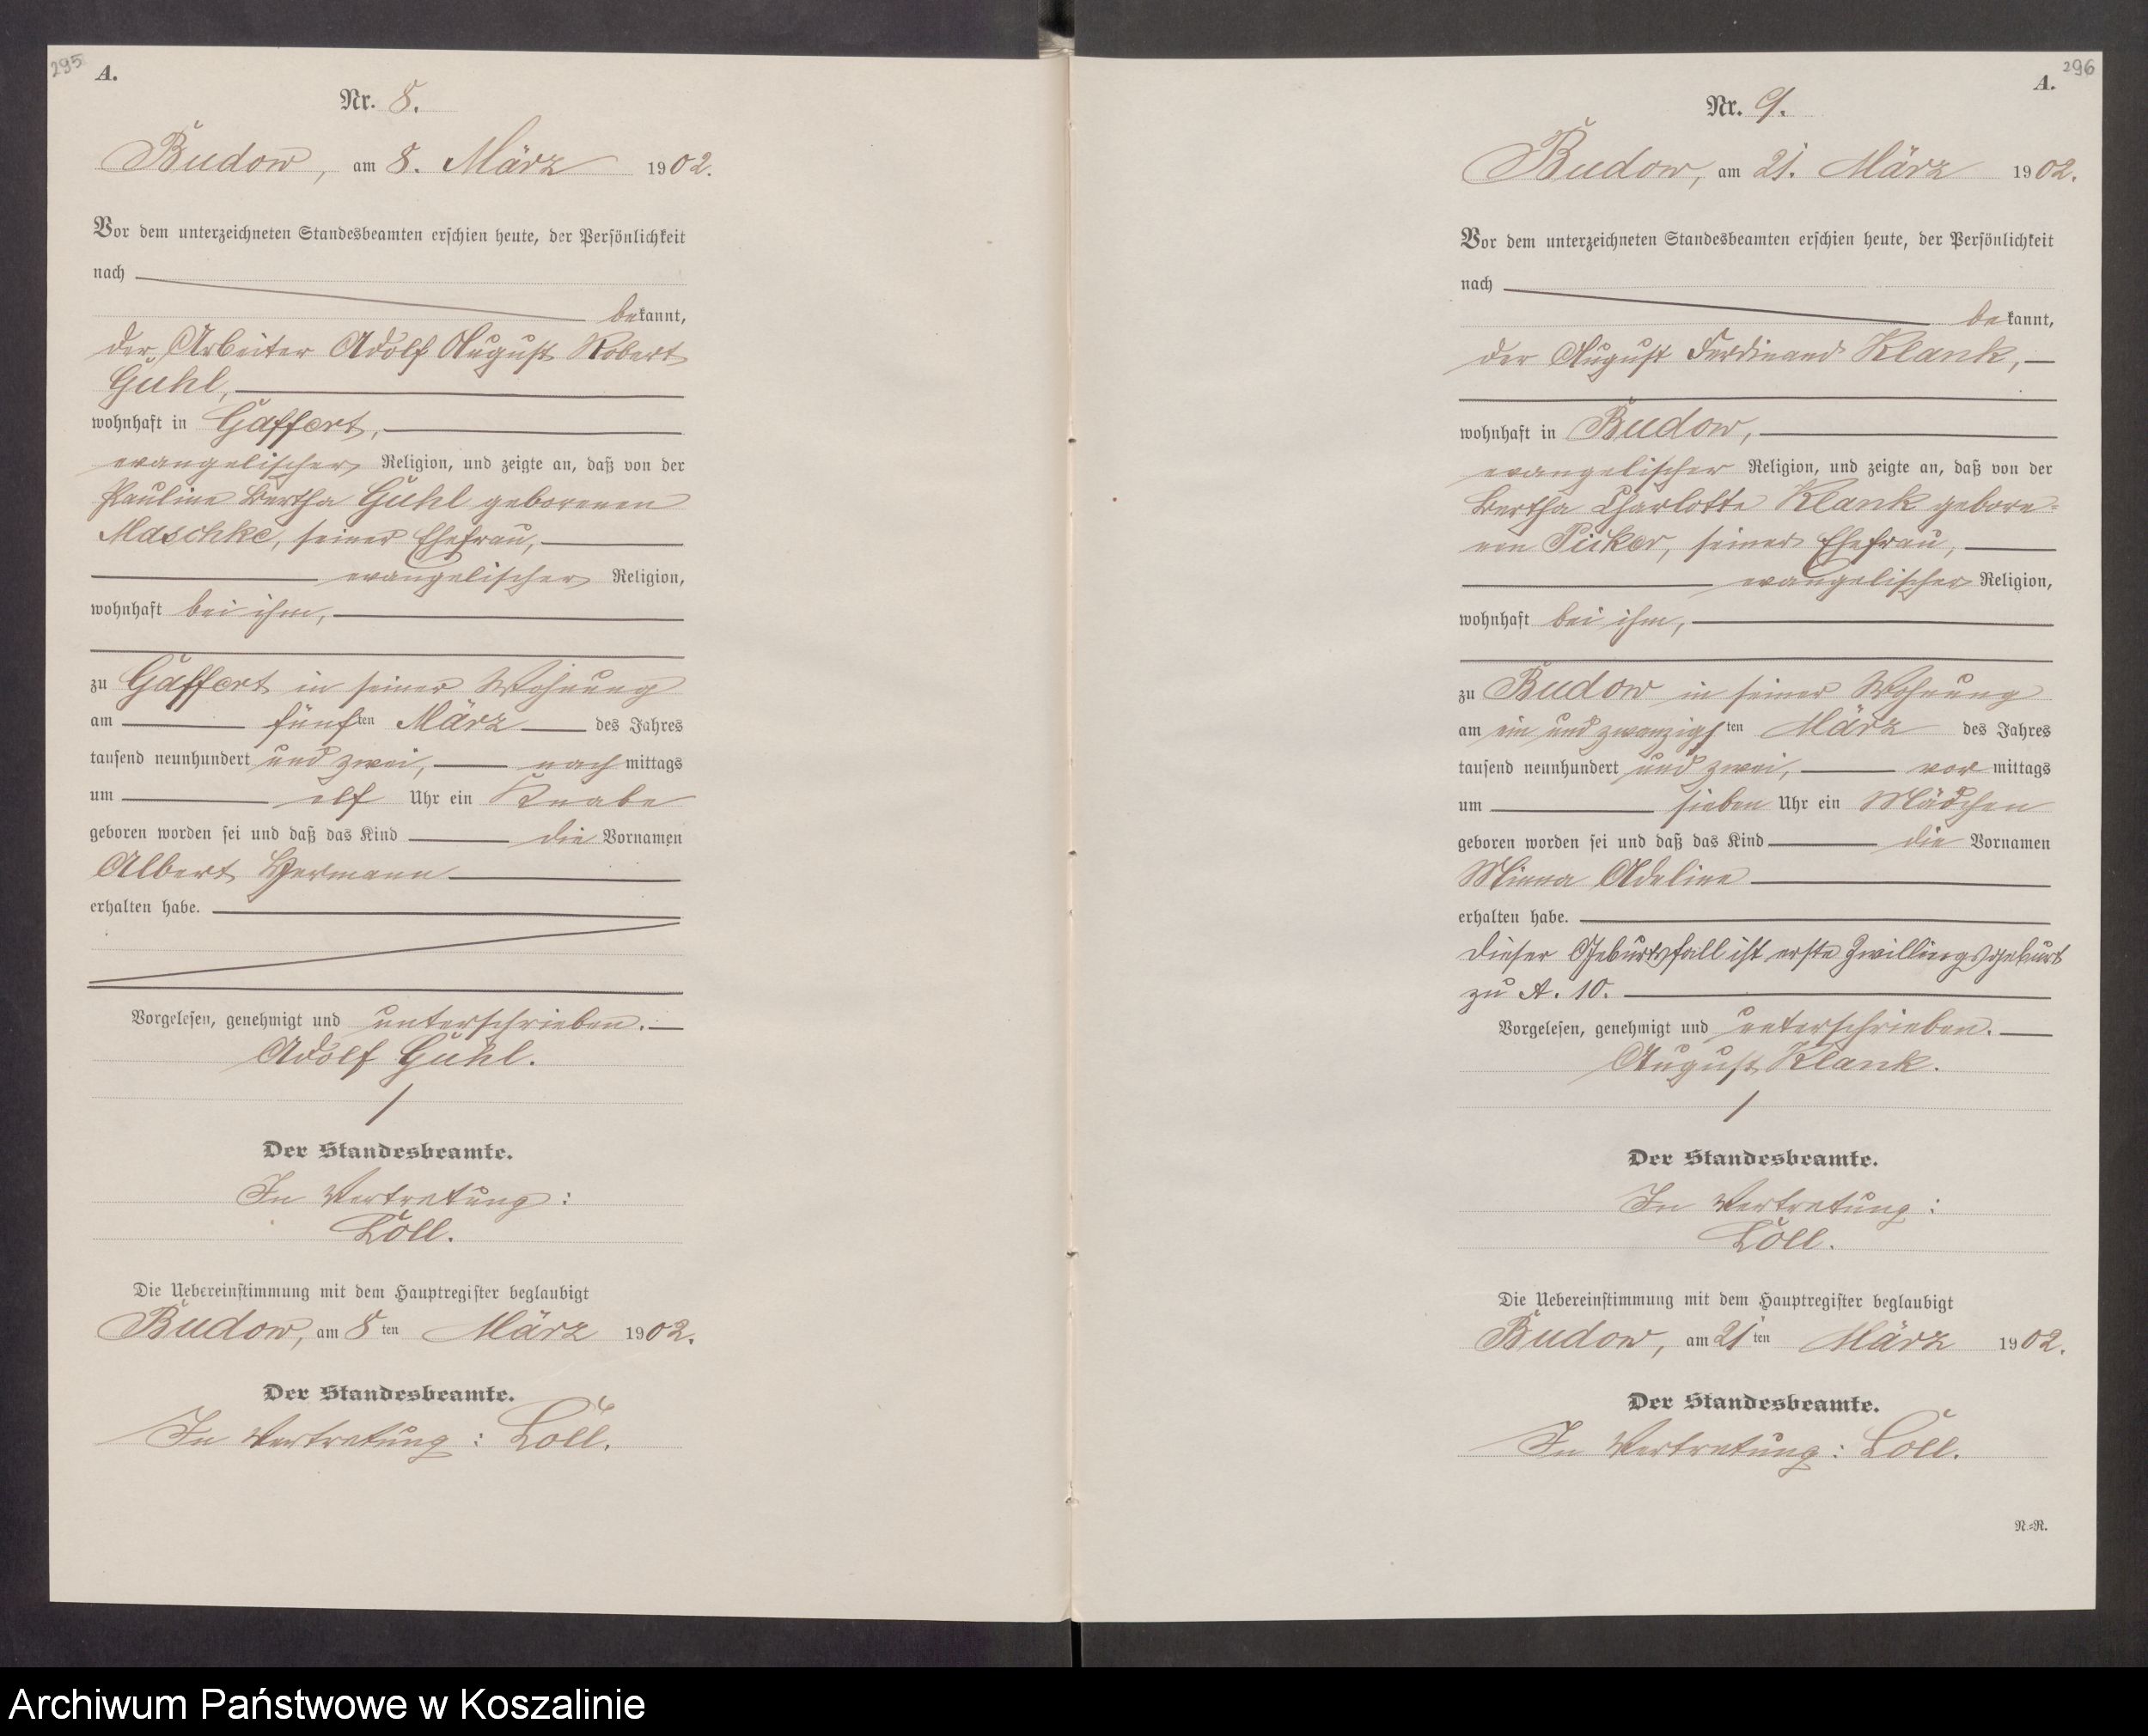 295
A.
Nr. 8.
Budow, am 8. März 1902.
Vor dem unterzeichneten Standesbeamten erschien heute, der Persönlichkeit
nach
bekannt,
der Arbeiter Adolf August Robert
Guhl,
wohnhaft in Gaffert,
evangelischer Religion, und zeigte an, daß von der
Pauline Bertha Guhl geborenen
Maschke, seiner Ehefrau,
evangelischer Religion,
wohnhaft bei ihm,
zu Gaffert in seiner Wohnung
am fünften März des Jahres
tausend neunhundert und zwei, nachmittags
um elf Uhr ein Knabe
geboren worden sei und daß das Kind die Vornamen
Albert Hermann
erhalten habe.
Vorgelesen, genehmigt und unterschrieben.
Adolf Guhl.
Der Standesbeamte.
In Vertretung:
Löll.
Die Uebereinstimmung mit dem Hauptregister beglaubigt
Budow, am 8ten März 1902.
Der Standesbeamte.
In Vertretung: Löll.
296
A.
Nr. 9.
Budow, am 21. März 1902.
Vor dem unterzeichneten Standesbeamten erschien heute, der Persönlichkeit
nach
bekannt,
der August Ferdinand Klank,
wohnhaft in Budow,
evangelischer Religion, und zeigte an, daß von der
Bertha Charlotte Klank gebore-
nen Piiker, seiner Ehefrau,
evangelischer Religion,
wohnhaft bei ihm,
zu Budow in seiner Wohnung
am ein und zwanzigsten März des Jahres
tausend neunhundert und zwei, vormittags
um sieben Uhr ein Mädchen
geboren worden sei und daß das Kind die Vornamen
Minna Adeline
erhalten habe.
Dieser Geburtsfall ist erste Zwillingsgeburt
zu A. 10.
Vorgelesen, genehmigt und unterschrieben.
August Klank.
Der Standesbeamte.
In Vertretung:
Löll.
Die Uebereinstimmung mit dem Hauptregister beglaubigt
Budow, am 21ten März 1902.
Der Standesbeamte.
In Vertretung: Löll.
N.-R.
Archiwum Państwowe w Koszalinie